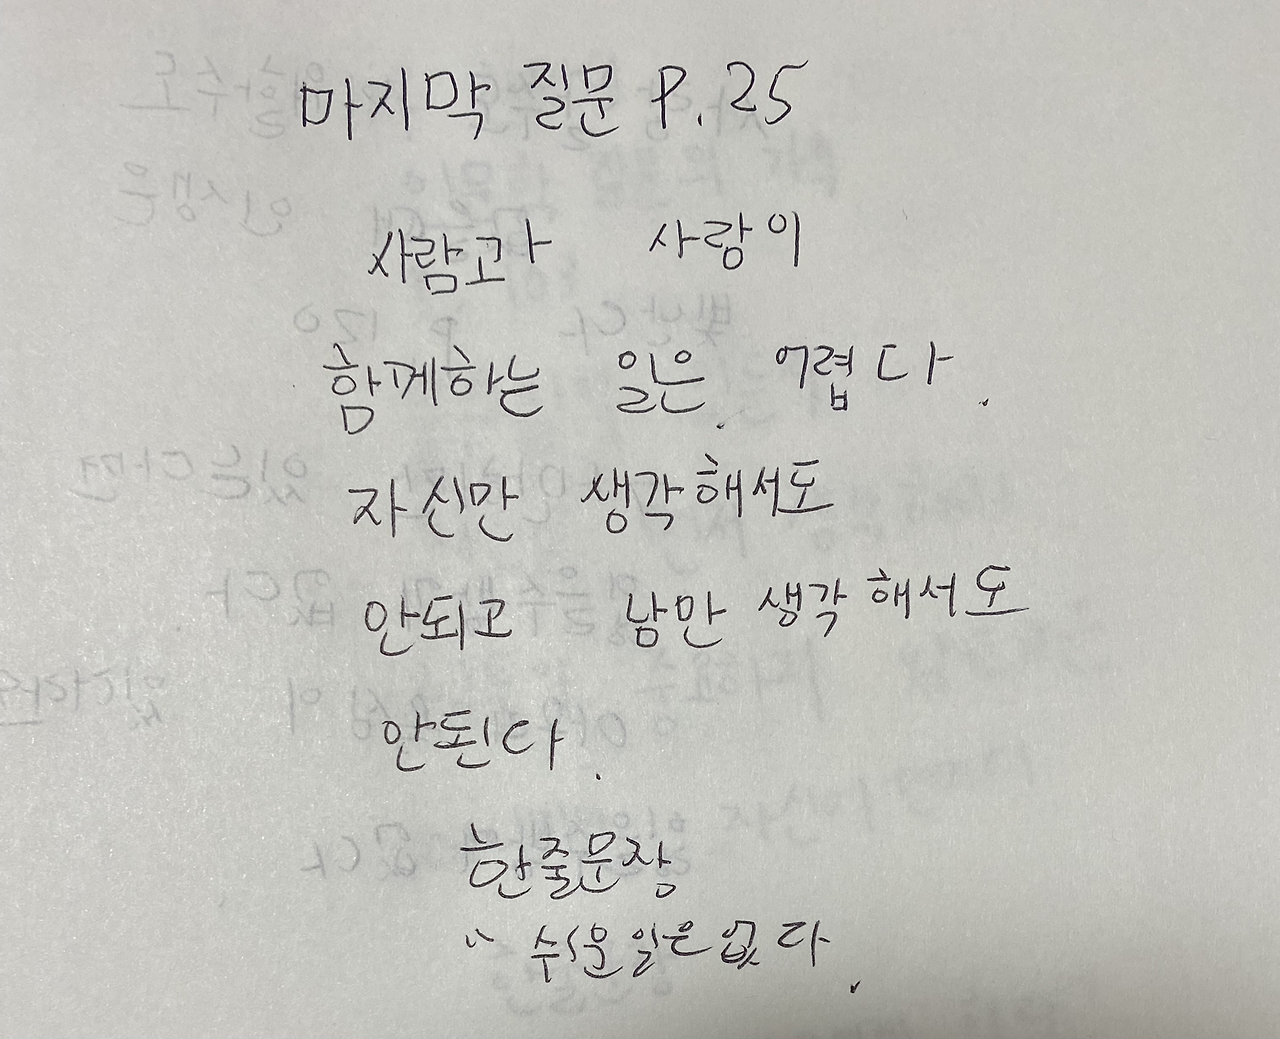 마지막 질문 P. 25
사람과 사랑이
함께하는 일은. 어렵다.
자신만 생각해서도
안되고 남만 생각해서도
안된다.
한줄문장
" 쉬운일은없다.